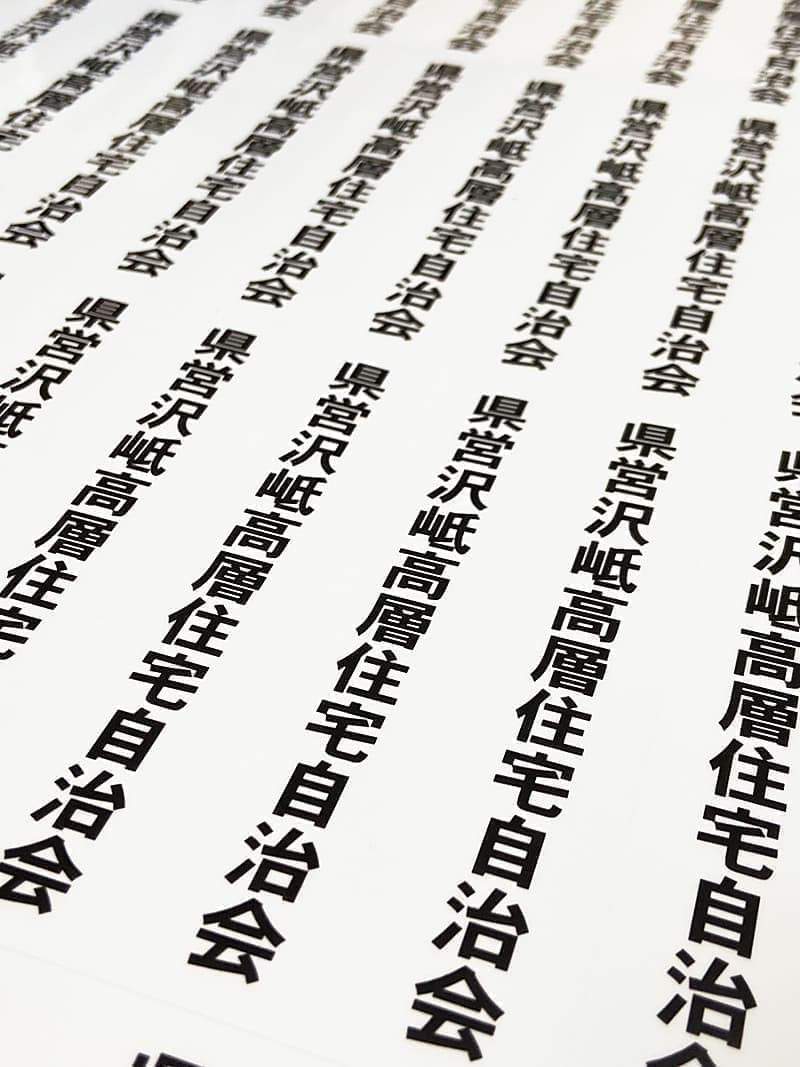 県営沢岻高層住宅自治会
県営沢岻高層住宅自治会
県営沢岻高層住宅自治会
県営沢岻高層住宅自治会
県営沢岻高層住宅自治会
県営沢岻高層住宅自治会
県営沢岻高層住宅
県営沢岻高層住宅自治会
県営沢岻高層住宅自治会
県営沢岻高層住宅自治会
県営沢岻高層住宅自治会
県営沢岻高層住宅
県営沢岻